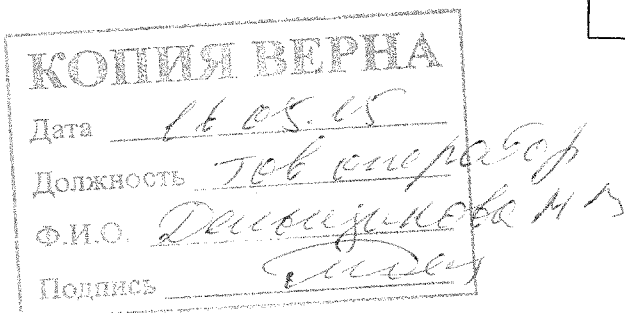 КОПИЯ ВЕРНА
Дата 05.15
Должность Тов оператор
Ф.И.О. М
Подпись